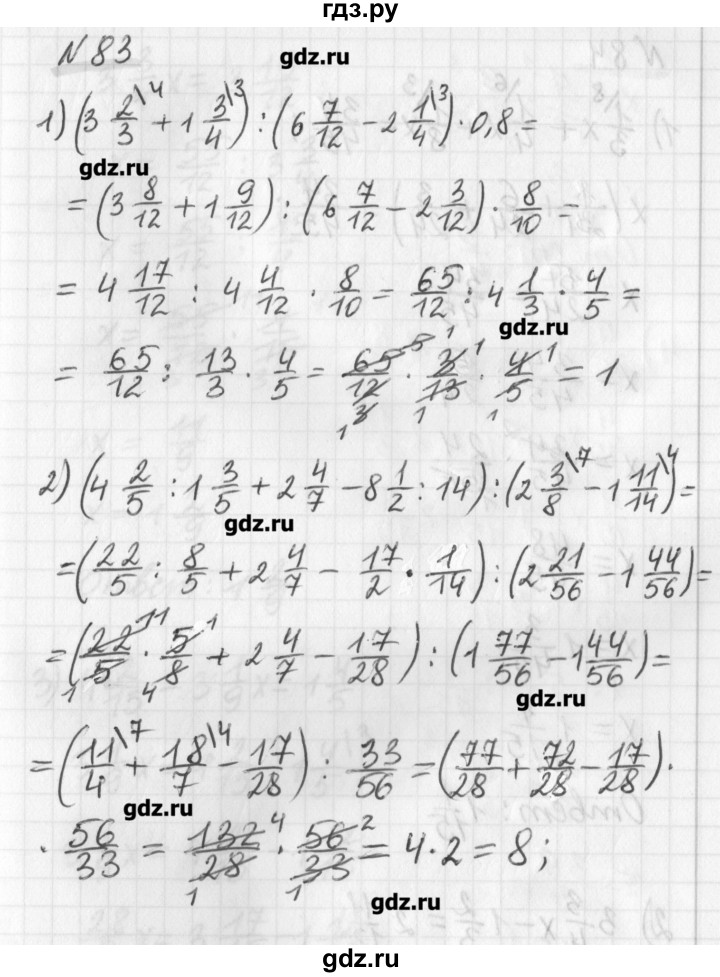 гдз.ру
№ 83
gdz.ru
1) (3 2/3\4 + 1 3/4\3) : (6 7/12 − 2 1/4\3) · 0,8 =
gdz.ru
= (3 8/12 + 1 9/12) : (6 7/12 − 2 3/12) · 8/10 =
= 4 17/12 : 4 4/12 · 8/10 = 65/12 : 4 1/3 · 4/5 =
gdz.ru
= 65/12 : 13/3 · 4/5 = 65/12 · 3/13 · 4/5 = 1
2) (4 2/5 : 1 3/5 + 2 4/7 − 8 1/2 : 14) : (2 3/8\7 − 1 11/14\4) =
gdz.ru
= (22/5 : 8/5 + 2 4/7 − 17/2 · 1/14) : (2 21/56 − 1 44/56) =
= (22/5 · 5/8 + 2 4/7 − 17/28) : (1 77/56 − 1 44/56) =
gdz.ru
= (11/4\7 + 18/7\4 − 17/28) : 33/56 = (77/28 + 72/28 − 17/28) ·
gdz.ru
· 56/33 = 132/28 · 56/33 = 4 · 2 = 8;
gdz.ru
gdz.ru